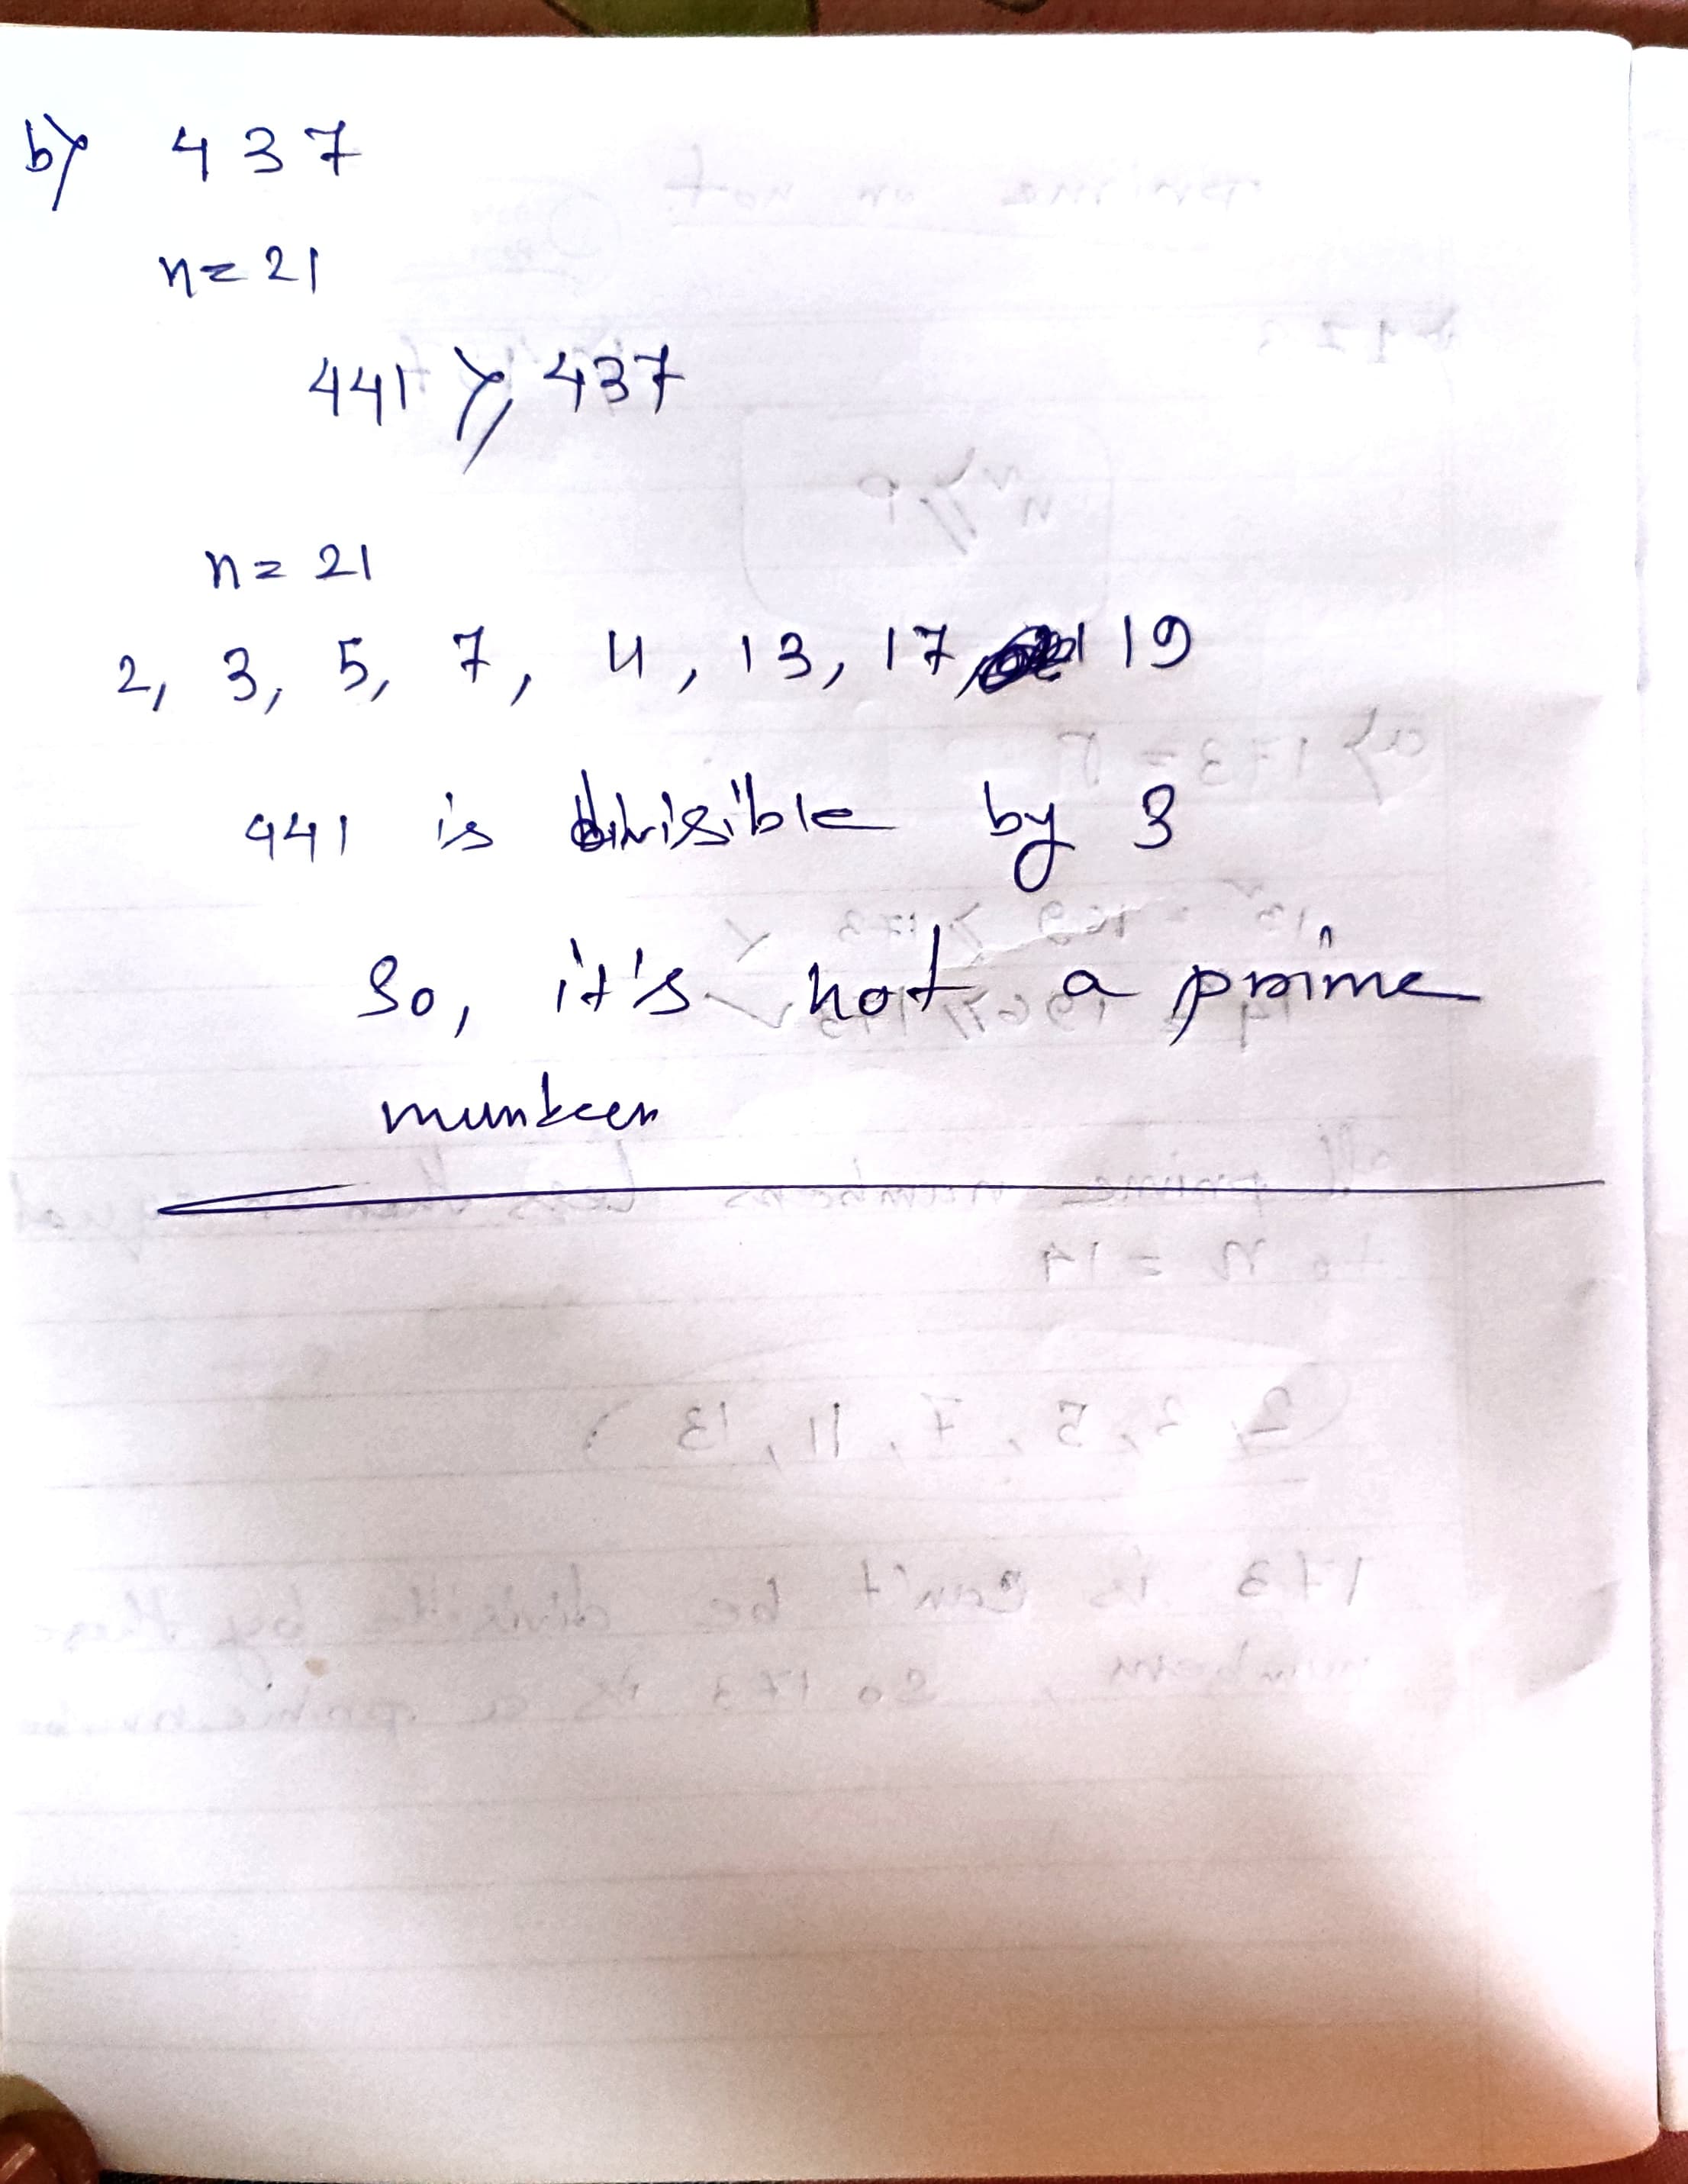 b) 437
n = 21
441 ≥ 437
n = 21
2, 3, 5, 7, 11, 13, 17, 19
441 is divisible by 3
So, it's not a prime
number